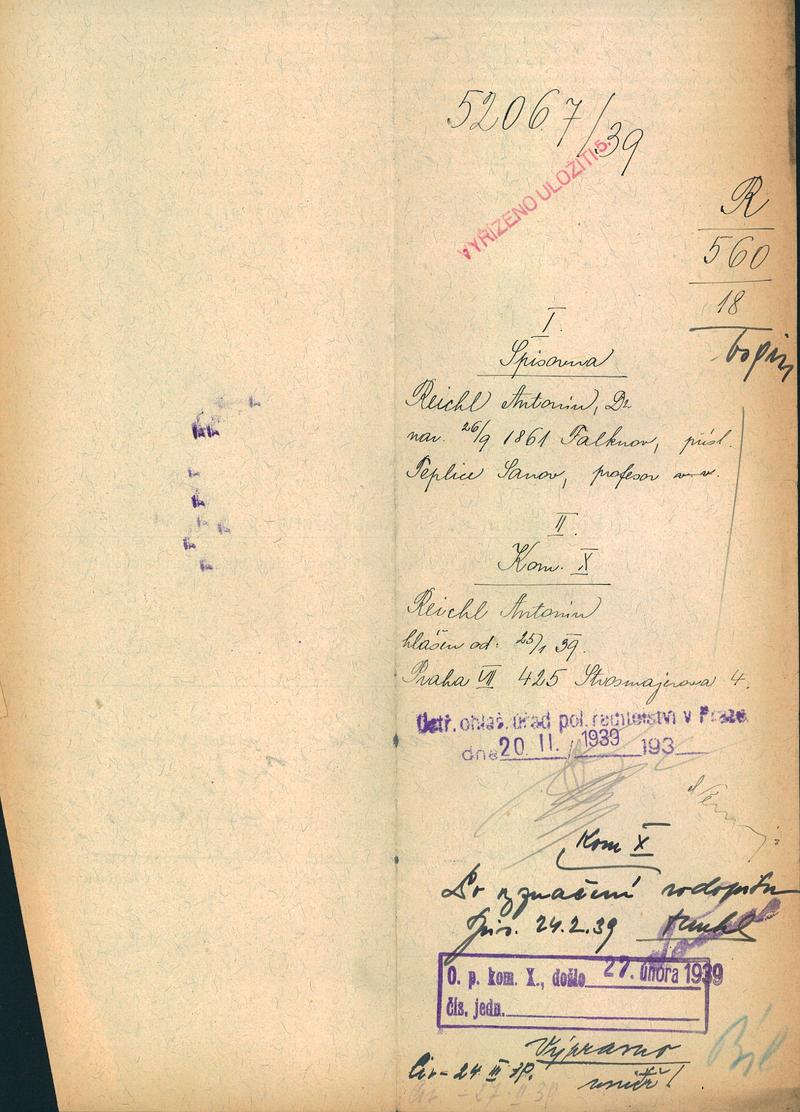 52067/39
VYŘÍZENO ULOŽITI 5.
R
560
18
I.
Spisovna
Reichl Antonín, Dr
nar. 26/9 1861 Falknov, přísl.
Teplice Šanov, profesor v. v.
II.
Kom. X
Reichl Antonín
hlášen od: 25/1 39.
Praha VII 425 Strosmajerova 4.
Ústř. ohlaš. úřad pol. ředitelství v Praze
dne 20. II. 1939 193
Kom X
Po vyznačení vodopisu
Spis. 24.2.39
O. p. kom. X., došlo 27. února 1939
čís. jedn.
Výpravno
24 III 39.
uvnitř!